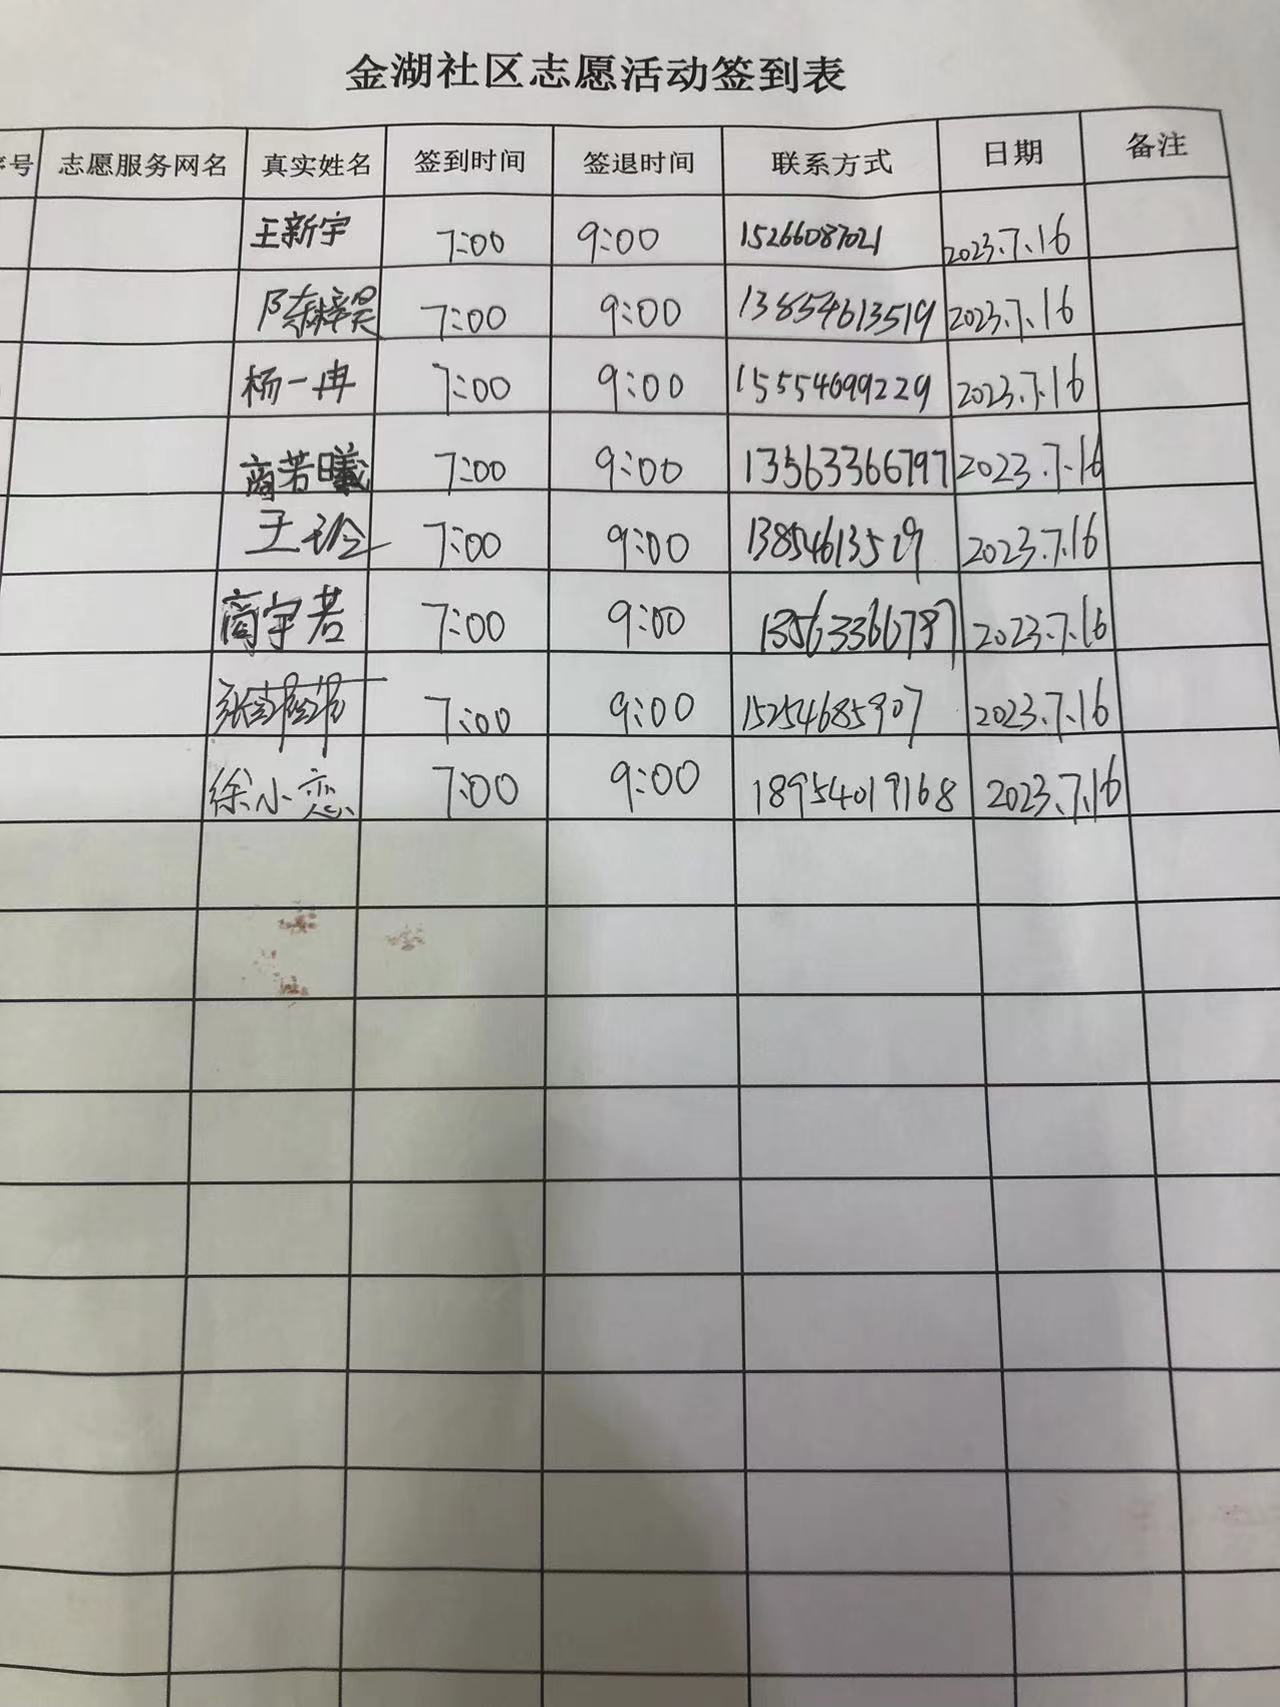 金湖社区志愿活动签到表
序号 志愿服务网名 真实姓名 签到时间 签退时间 联系方式 日期 备注
王新宇 7:00 9:00 15266087021 2023.7.16
陈梓昊 7:00 9:00 13854613519 2023.7.16
杨一冉 7:00 9:00 15554699229 2023.7.16
商若曦 7:00 9:00 13563366797 2023.7.16
王玲 7:00 9:00 13854613519 2023.7.16
商宇若 7:00 9:00 13563366797 2023.7.16
7:00 9:00 15254685907 2023.7.16
徐小恋 7:00 9:00 18954019168 2023.7.16